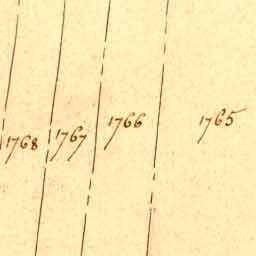 1768 1767 1766 1765